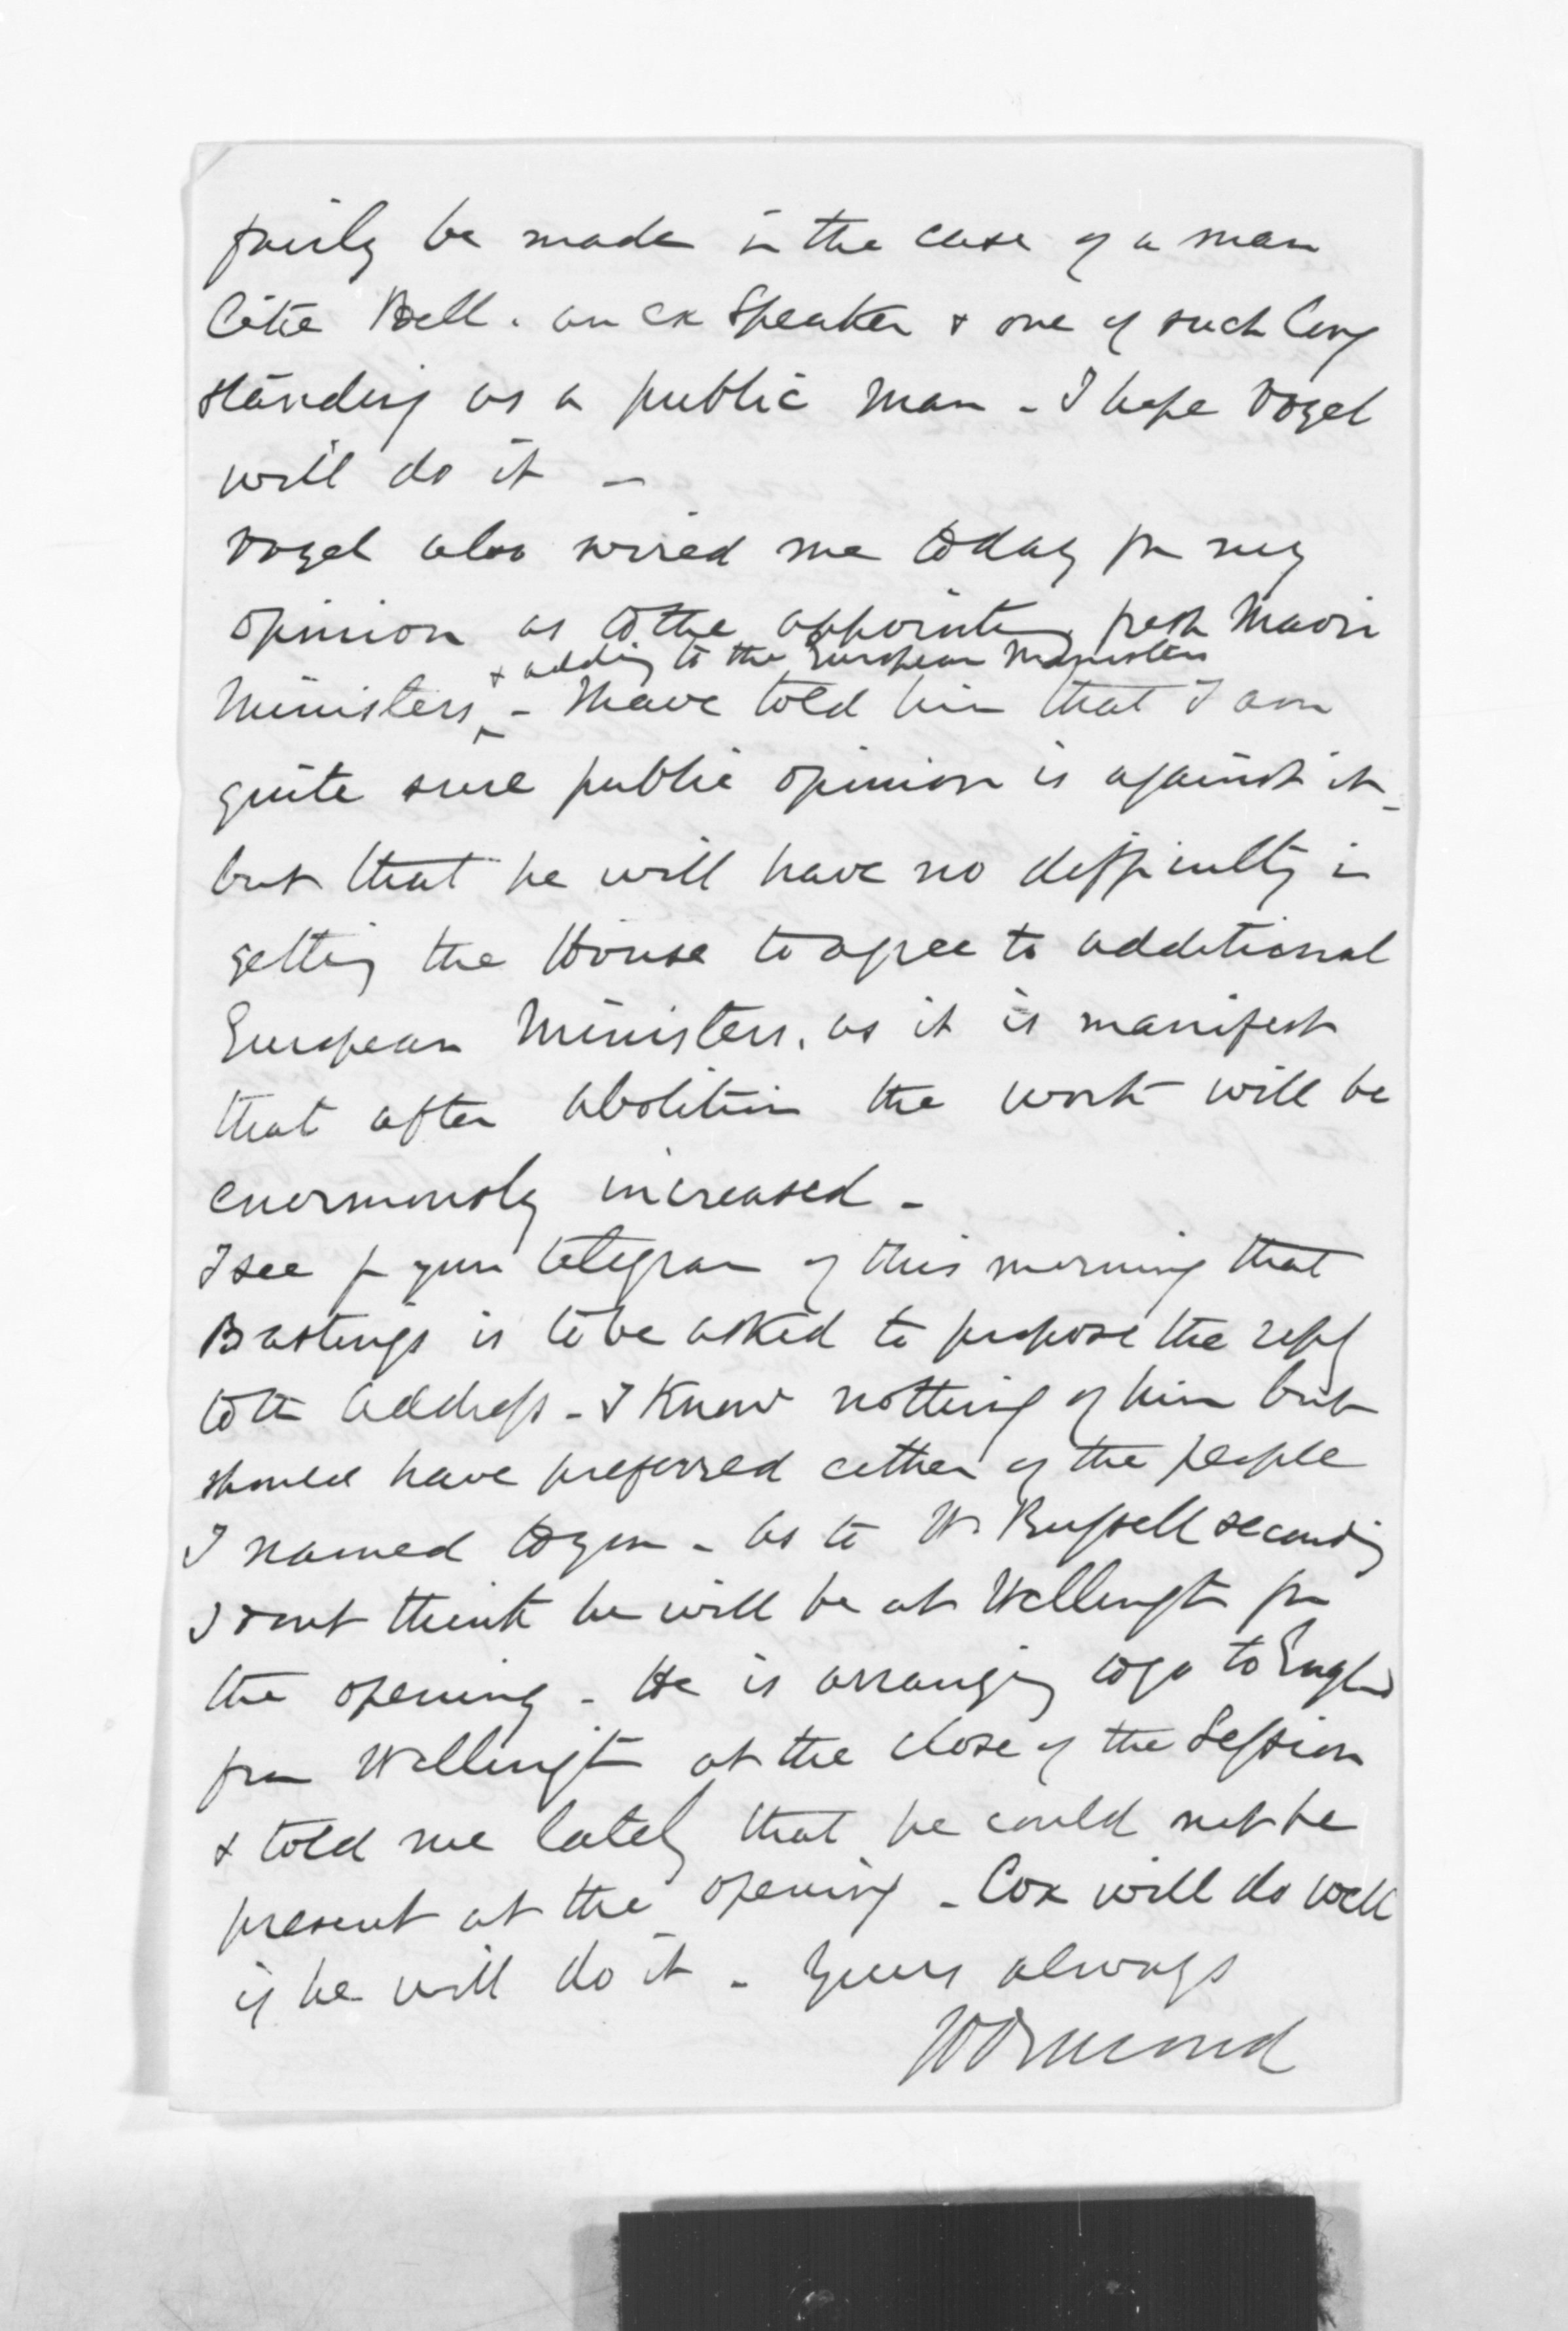 fairly be made in the case of a man
like Bell. an ex Speaker & one of such long
standing as a public man - I hope Vogel
will do it -
Vogel also wired me today for my
opinion as to the appointg fresh Maori
& adding to the European Ministers
Ministers - I have told him that I am
quite sure public opinion is against it -
but that he will have no difficulty in
getting the House to agree to additional
European Ministers. as it is manifest
that after abolition the work will be
enormously increased -
I see fr your telegram of this morning that
Bastings is to be asked to propose the reply
to the address - I know nothing of him but
should have preferred either of the people
I named to you - As to W. Russell seconding
I dont think he will be at Wellingtn for
the opening - He is arranging to go to England
from Wellingtn at the close of the Session
& told me lately that he could not be
present at the opening - Cox will do well
if he will do it - Yours always
JD Ormond